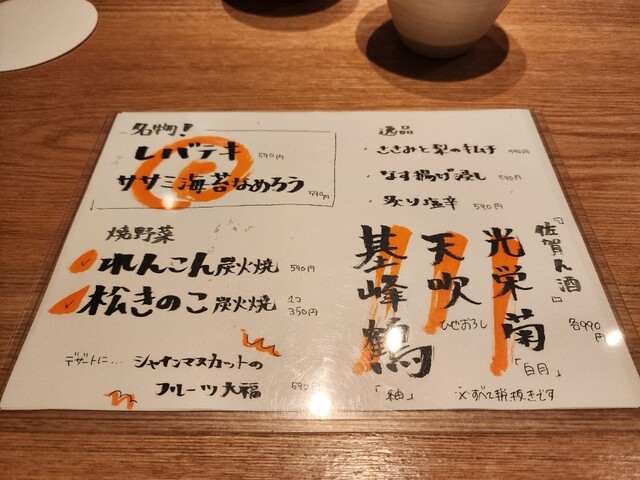 名物！
レバテキ 590円
ササミ海苔なめろう 590円
焼野菜
れんこん炭火焼 590円
松きのこ炭火焼 1コ 350円
デザートに…
シャインマスカットの
フルーツ大福 590円
逸品
・ささみと梨のキムチ 490円
・なす揚げ浸し 590円
・炙り塩辛 590円
「佐賀ん酒」
各990円
光栄菊
「白月」
天吹
ひやおろし
基峰鶴
「
」
※すべて税抜きです